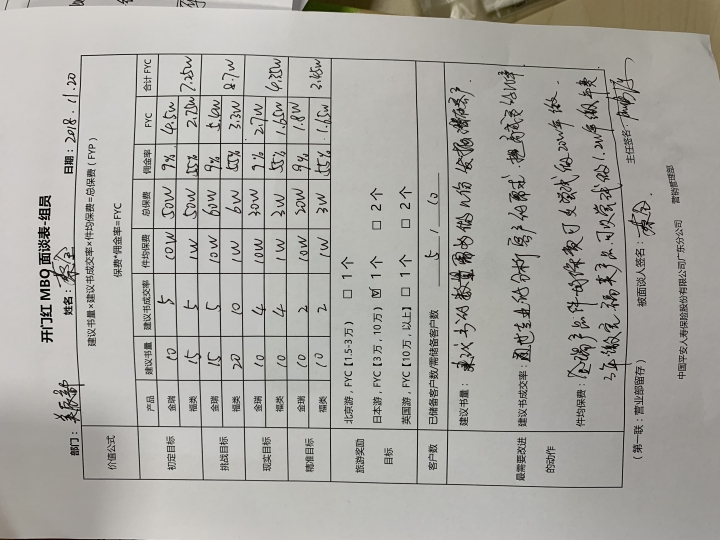 开门红 MBO 面谈表-组员
部门： 姓名： 日期：2018.11.20
价值公式 建议书量×建议书成交率×件均保费=总保费（FYP）
保费*佣金率=FYC
产品 建议书量 建议书成交率 件均保费 总保费 佣金率 FYC 合计 FYC
初定目标 金瑞 10 5 10W 50W 9% 4.5W 7.25W
福类 15 5 1W 5W 55% 2.75W
挑战目标 金瑞 15 5 10W 60W 9% 5.4W 8.7W
福类 20 10 1W 6W 55% 3.3W
现实目标 金瑞 10 4 10W 30W 9% 2.7W 4.35W
福类 10 4 1W 3W 55% 1.65W
精准目标 金瑞 10 2 10W 20W 9% 1.8W 3.45W
福类 10 2 1W 3W 55% 1.65W
旅游奖励 北京游，FYC【1.5-3 万） □ 1 个
目标 日本游，FYC【3 万，10 万） ☑ 1 个 □ 2 个
英国游，FYC【10 万，以上】 □ 1 个 □ 2 个
客户数 已储备客户数/需储备客户数 5 / 10
最需要改进 建议书量：建议书的数量需要做10份
的动作 建议书成交率：通过专业的分析客户的需求
件均保费：金瑞产品件均保费可以尝试做20W年缴.
3年缴完 福类产品可以尝试做1.2W年缴年费
（ 第一联：营业部留存 ） 被面谈人签名： 主任签名：
中国平安人寿保险股份有限公司广东分公司 营销管理部